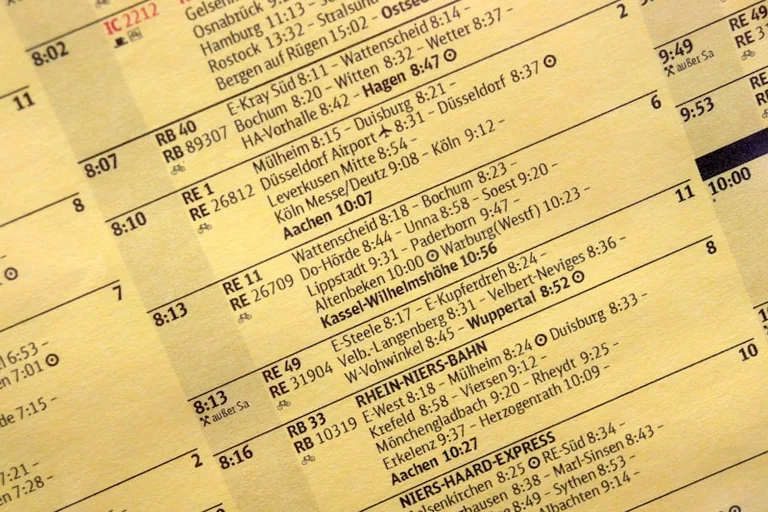 8:02
IC 2212
Osnabrück
Hamburg 11:13 –
Rostock 13:32 – Stralsund
Bergen auf Rügen 15:02 – Ostsee
11
8:07
RB 40
RB 89307
E-Kray Süd 8:11 – Wattenscheid 8:14 –
Bochum 8:20 – Witten 8:32 – Wetter 8:37 –
HA-Vorhalle 8:42 – Hagen 8:47
2
8
8:10
RE 1
RE 26812
Mülheim 8:15 – Duisburg 8:21 –
Düsseldorf Airport 8:31 – Düsseldorf 8:37
Leverkusen Mitte 8:54 –
Köln Messe/Deutz 9:08 – Köln 9:12 –
Aachen 10:07
6
7
8:13
RE 11
RE 26709
Wattenscheid 8:18 – Bochum 8:23 –
Do-Hörde 8:44 – Unna 8:58 – Soest 9:20 –
Lippstadt 9:31 – Paderborn 9:47 –
Altenbeken 10:00 Warburg(Westf) 10:23 –
Kassel-Wilhelmshöhe 10:56
11
8:13
außer Sa
RE 49
RE 31904
E-Steele 8:17 – E-Kupferdreh 8:24 –
Velb.-Langenberg 8:31 – Velbert-Neviges 8:36 –
W-Vohwinkel 8:45 – Wuppertal 8:52
8
2
8:16
RB 33
RB 10319
RHEIN-NIERS-BAHN
E-West 8:18 – Mülheim 8:24 Duisburg 8:33 –
Krefeld 8:58 – Viersen 9:12 –
Mönchengladbach 9:20 – Rheydt 9:25 –
Erkelenz 9:37 – Herzogenrath 10:09 –
Aachen 10:27
10
NIERS-HAARD-EXPRESS
8:25 RE-Süd 8:34 –
8:38 – Marl-Sinsen 8:43 –
8:49 – Sythen 8:53 –
9:14 –
6:53 –
7:01
7:15 –
7:21 –
7:28 –
9:49
außer Sa
RE 49
9:53
10:00